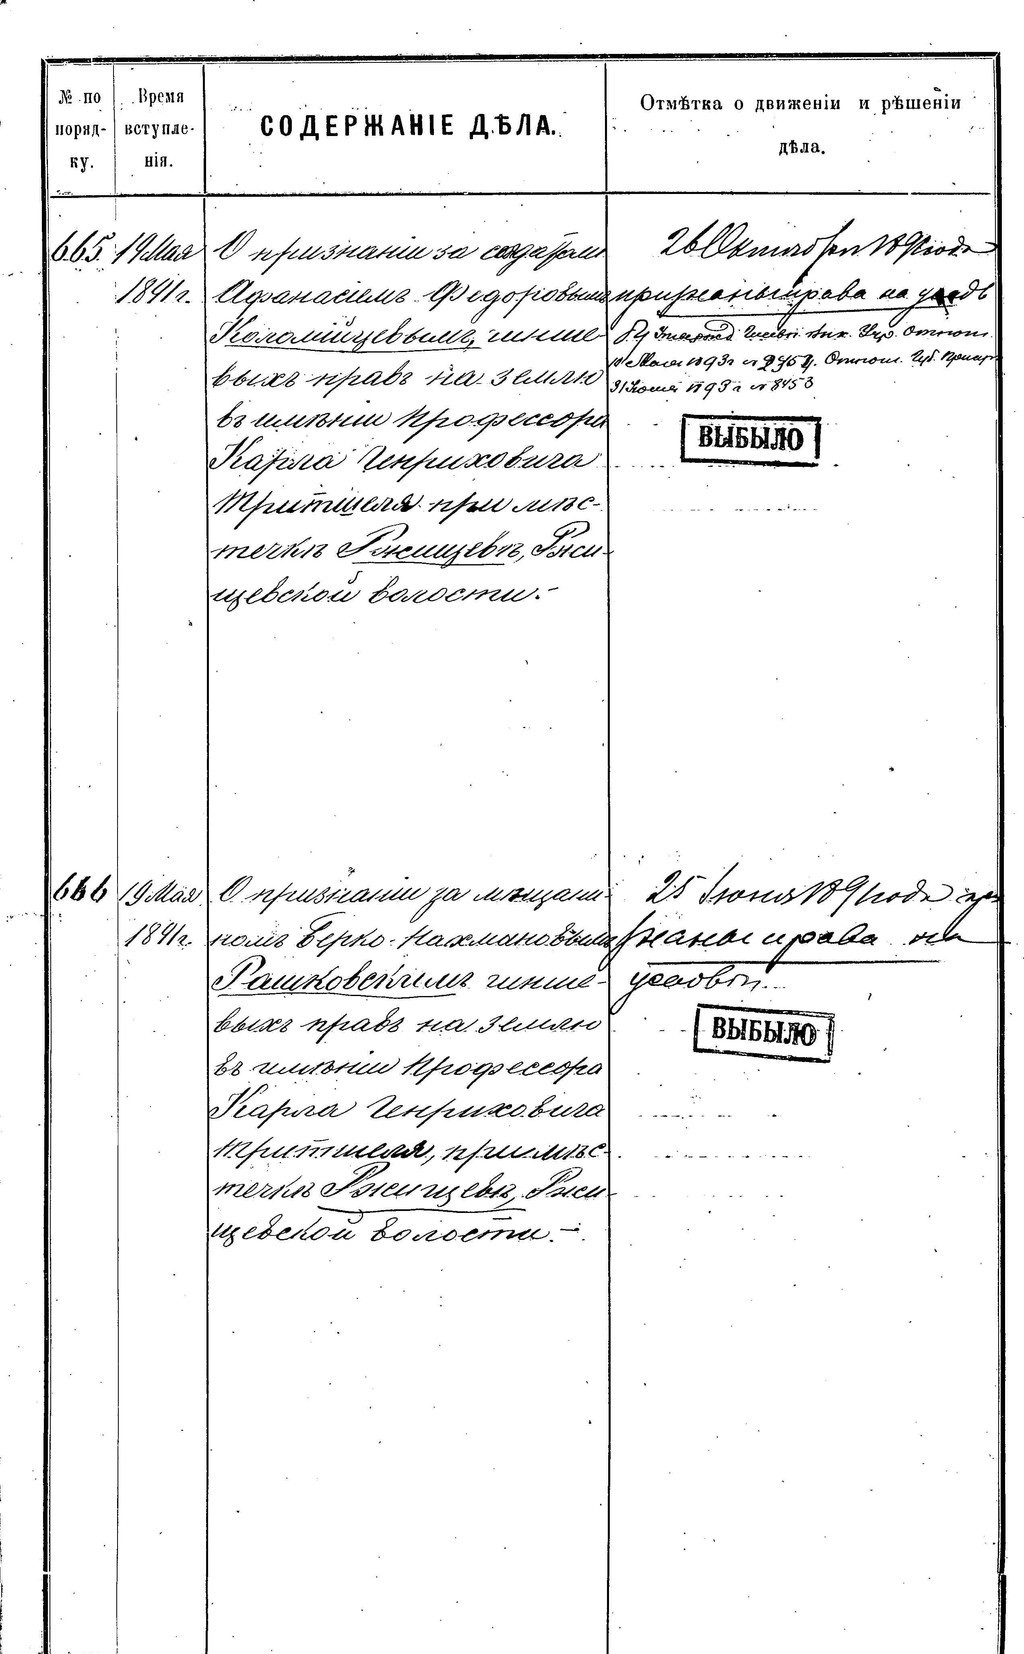 № по поряд-ку.
Время вступле-нія.
СОДЕРЖАНІЕ ДѢЛА.
Отмѣтка о движеніи и рѣшеніи
дѣла.
665.
19 Мая
1891 г.
О признаніи за солдатомъ
Афанасіемъ Федоровымъ
Коломійцевымъ, чинше-
выхъ правъ на землю
въ имѣніи профессора
Карла Генриховича
Тритшеля при мѣс-
течкѣ Ржищевѣ, Ржи-
щевской волости.-
26 Октября 1891 года
признаны права на усадь
1893 г
31 Юня 1893 г № 8453
ВЫБЫЛО
666
19 Мая
1891 г.
О признаніи за мѣщани-
номъ Берко-Нахмановымъ
Рашковскимъ чинше-
выхъ правъ на землю
въ имѣніи профессора
Карла Генриховича
Тритшеля, при мѣс-
течкѣ Ржищевѣ, Ржи-
щевской волости.-
25 Іюня 1891 года при
знаны права на
ВЫБЫЛО